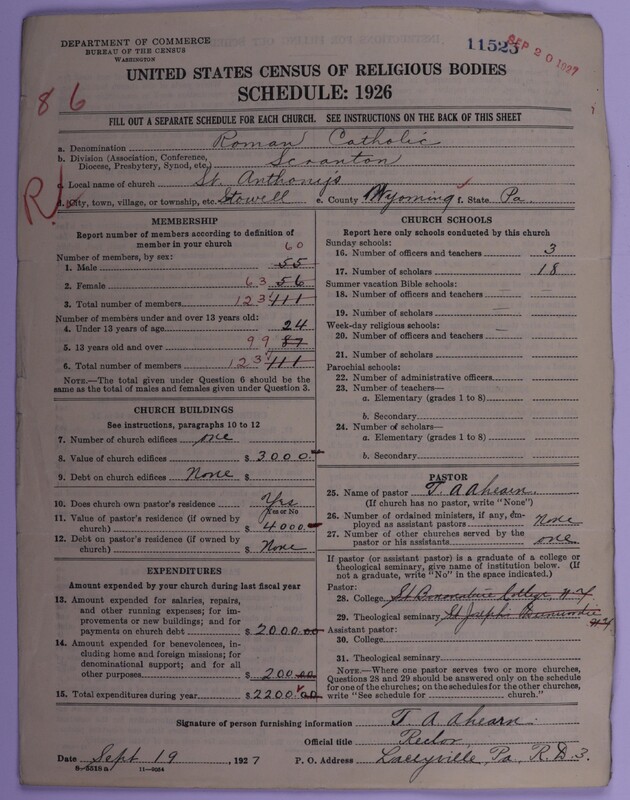 DEPARTMENT OF COMMERCE
BUREAU OF THE CENSUS
WASHINGTON
11523
SEP 20 1927
UNITED STATES CENSUS OF RELIGIOUS BODIES
SCHEDULE: 1926
86
FILL OUT A SEPARATE SCHEDULE FOR EACH CHURCH. SEE INSTRUCTIONS ON THE BACK OF THIS SHEET
a. Denomination Roman Catholic
b. Division (Association, Conference, Diocese, Presbytery, Synod, etc.) Scranton
c. Local name of church St. Anthony's
R
d. City, town, village, or township, etc. Stowell e. County Wyoming f. State Pa.
MEMBERSHIP
Report number of members according to definition of
member in your church
Number of members, by sex:
60
1. Male 55
2. Female 63 56
3. Total number of members 123 111
Number of members under and over 13 years old:
4. Under 13 years of age 24
5. 13 years old and over 99 87
6. Total number of members 123 111
NOTE.—The total given under Question 6 should be
same as the total of males and females given under Question 3.
CHURCH BUILDINGS
See instructions, paragraphs 10 to 12
7. Number of church edifices one
8. Value of church edifices $ 3000.
9. Debt on church edifices None $
10. Does church own pastor's residence Yes
Yes or No
11. Value of pastor's residence (if owned by
church) $ 4000.
12. Debt on pastor's residence (if owned by
church) $ None
EXPENDITURES
Amount expended by your church during last fiscal year
13. Amount expended for salaries, repairs,
and other running expenses; for im-
provements or new buildings; and for
payments on church debt $ 2000.00
14. Amount expended for benevolences, in-
cluding home and foreign missions; for
denominational support; and for all
other purposes $ 200.00
15. Total expenditures during year $ 2200.00
CHURCH SCHOOLS
Report here only schools conducted by this church
Sunday schools:
16. Number of officers and teachers 3
17. Number of scholars 18
Summer vacation Bible schools:
18. Number of officers and teachers
19. Number of scholars
Week-day religious schools:
20. Number of officers and teachers
21. Number of scholars
Parochial schools:
22. Number of administrative officers
23. Number of teachers—
a. Elementary (grades 1 to 8)
b. Secondary
24. Number of scholars—
a. Elementary (grades 1 to 8)
b. Secondary
PASTOR
25. Name of pastor T. A. Ahearn
(If church has no pastor, write "None")
26. Number of ordained ministers, if any, em-
ployed as assistant pastors None
27. Number of other churches served by the
pastor or his assistants one
If pastor (or assistant pastor) is a graduate of a college or
theological seminary, give name of institution below. (If
not a graduate, write "No" in the space indicated.)
Pastor:
28. College St Bonaventure College, N.Y.
29. Theological seminary St Joseph's N.Y.
Assistant pastor:
30. College
31. Theological seminary
NOTE.—Where one pastor serves two or more churches,
Questions 28 and 29 should be answered only on the schedule
for one of the churches; on the schedules for the other churches,
write "See schedule for church."
Signature of person furnishing information T. A. Ahearn
Official title Rector
Date Sept 19, 1927 P. O. Address Laceyville, Pa, R.D. 3.
8-5518a 11-9054